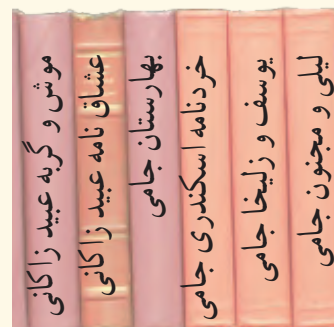 لیلی و مجنون جامی
یوسف و زلیخا جامی
خردنامه اسکندری جامی
بهارستان جامی
عشاق نامه عبید زاکانی
موش و گربه عبید زاکانی